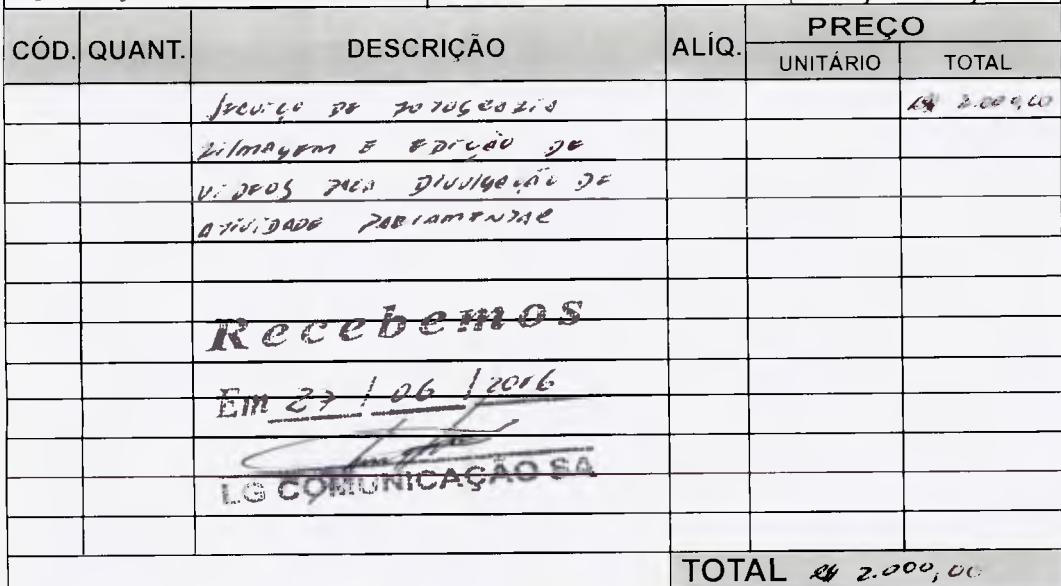 CÓD. QUANT. DESCRIÇÃO ALÍQ. PREÇO
UNITÁRIO TOTAL
Serviço de fotografia R$ 2.000,00
filmagem e edição de
videos para divulgação de
atividade parlamentar
Recebemos
Em 27 / 06 / 2016
LG COMUNICAÇÃO SA
TOTAL R$ 2.000,00